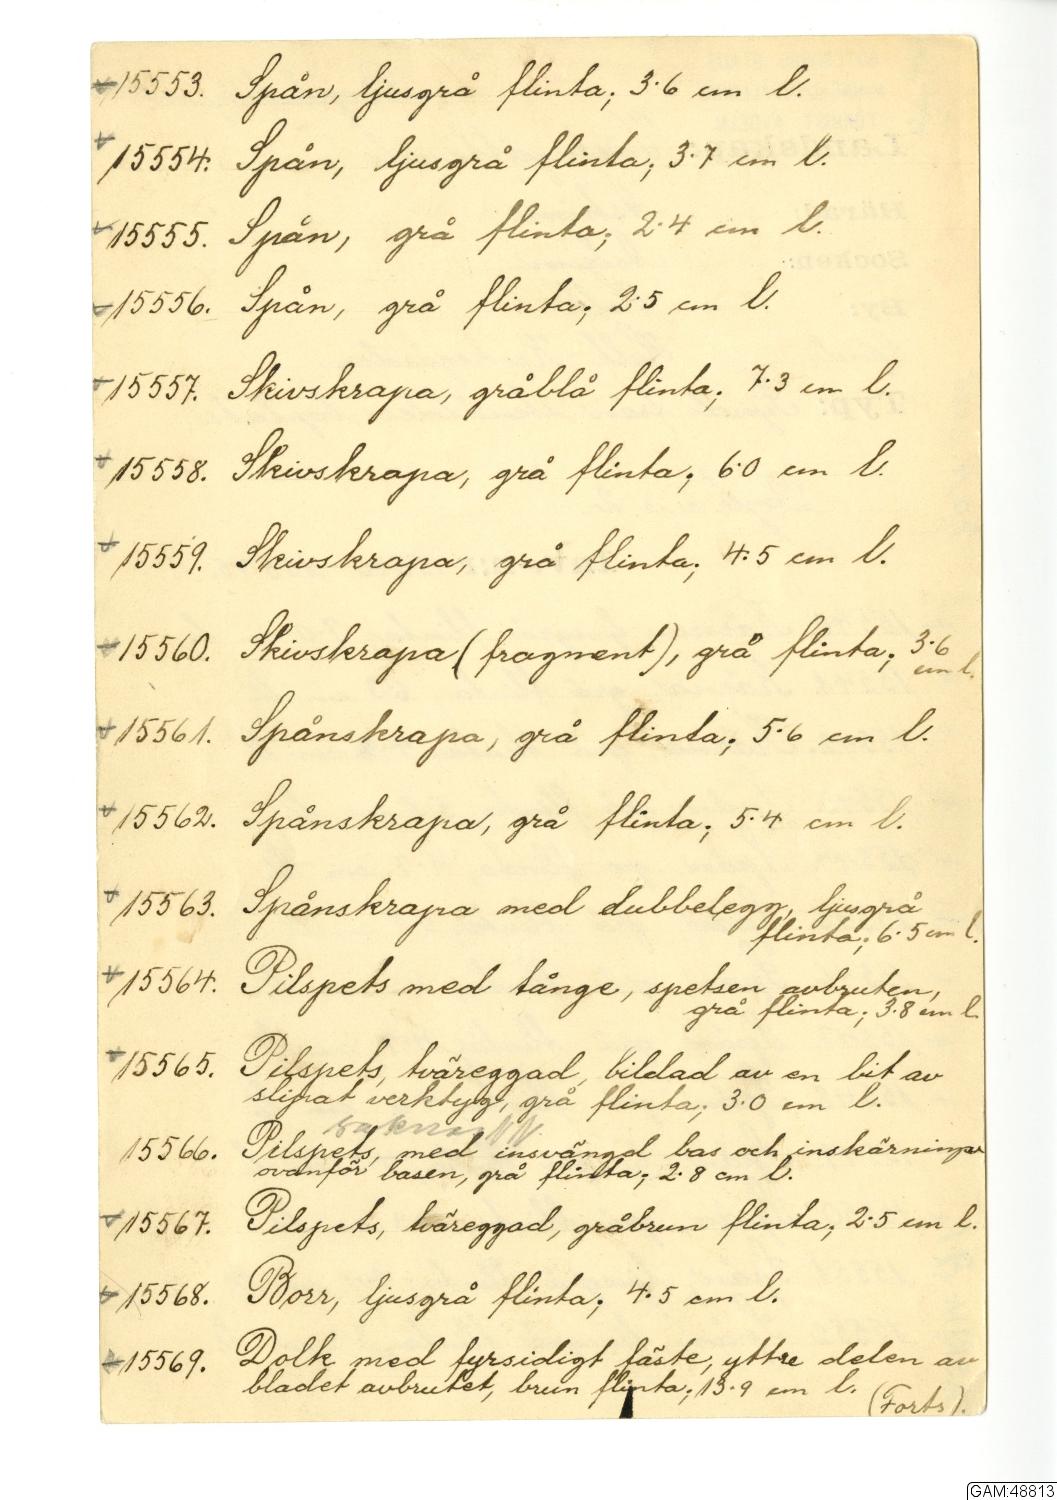 15553. Spån, ljusgrå flinta; 3·6 cm l.
15554. Spån, ljusgrå flinta; 3·7 cm l.
15555. Spån, grå flinta; 2·4 cm l.
15556. Spån, grå flinta; 2·5 cm l.
15557. Skivskrapa, gråblå flinta; 7·3 cm l.
15558. Skivskrapa, grå flinta; 6·0 cm l.
15559. Skivskrapa, grå flinta; 4·5 cm l.
15560. Skivskrapa (fragment), grå flinta; 3·6
cm l.
15561. Spånskrapa, grå flinta; 5·6 cm l.
15562. Spånskrapa, grå flinta; 5·4 cm l.
15563. Spånskrapa med dubbelegg, ljusgrå
flinta; 6·5 cm l.
15564. Pilspets med tånge, spetsen avbruten,
grå flinta; 3·8 cm l.
15565. Pilspets, tväreggad, bildad av en bit av
slipat verktyg, grå flinta; 3·0 cm l.
saknas
15566. Pilspets, med insvängd bas och inskärningar
ovanför basen, grå flinta; 2·8 cm l.
15567. Pilspets, tväreggad, gråbrun flinta; 2·5 cm l.
15568. Borr, ljusgrå flinta; 4·5 cm l.
15569. Dolk med fyrsidigt fäste, yttre delen av
bladet avbrutet, brun flinta; 13·9 cm l.
(Forts).
GAM:48813